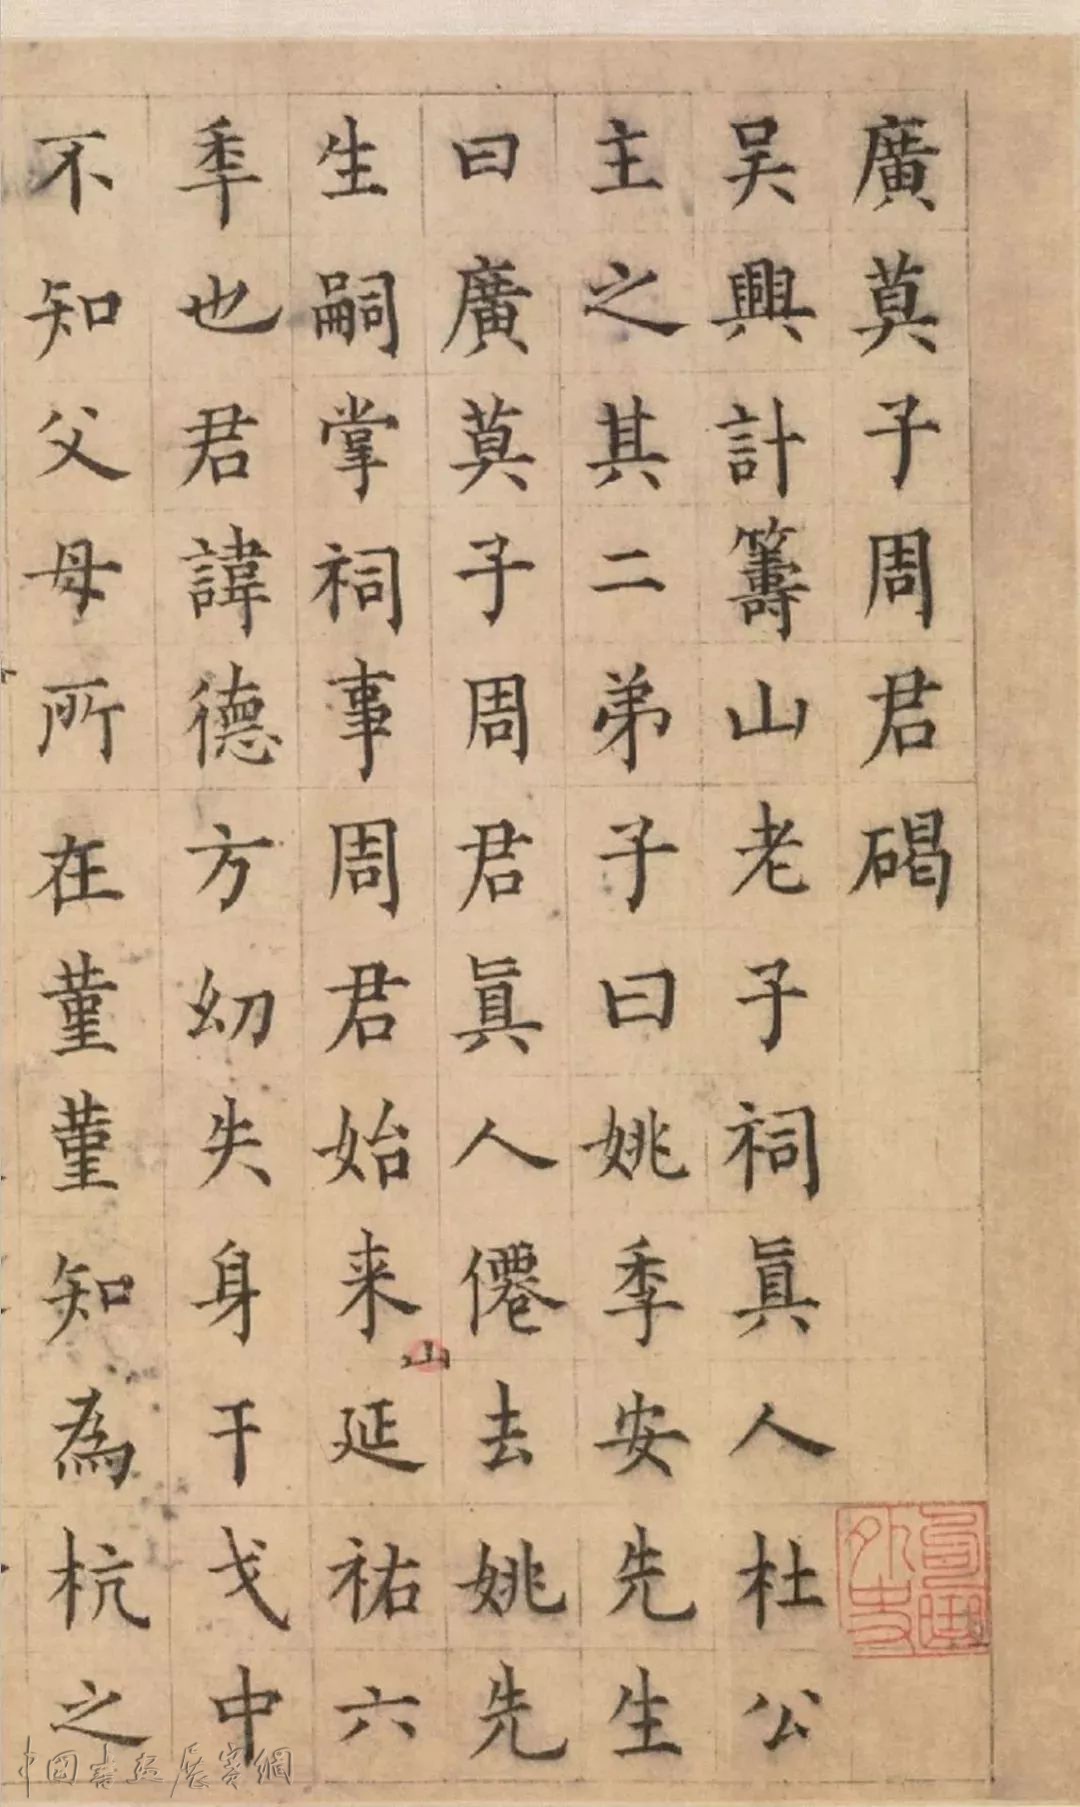 廣莫子周君碣
吴興計籌山老子祠眞人杜公
主之其二弟子曰姚季安先生
曰廣莫子周君眞人僊去姚先
生嗣掌祠事周君始来延祐六
秊也君諱德方㓜失身干戈中
不知父母所在菫菫知為杭之
山
外史
中国書画展赛網